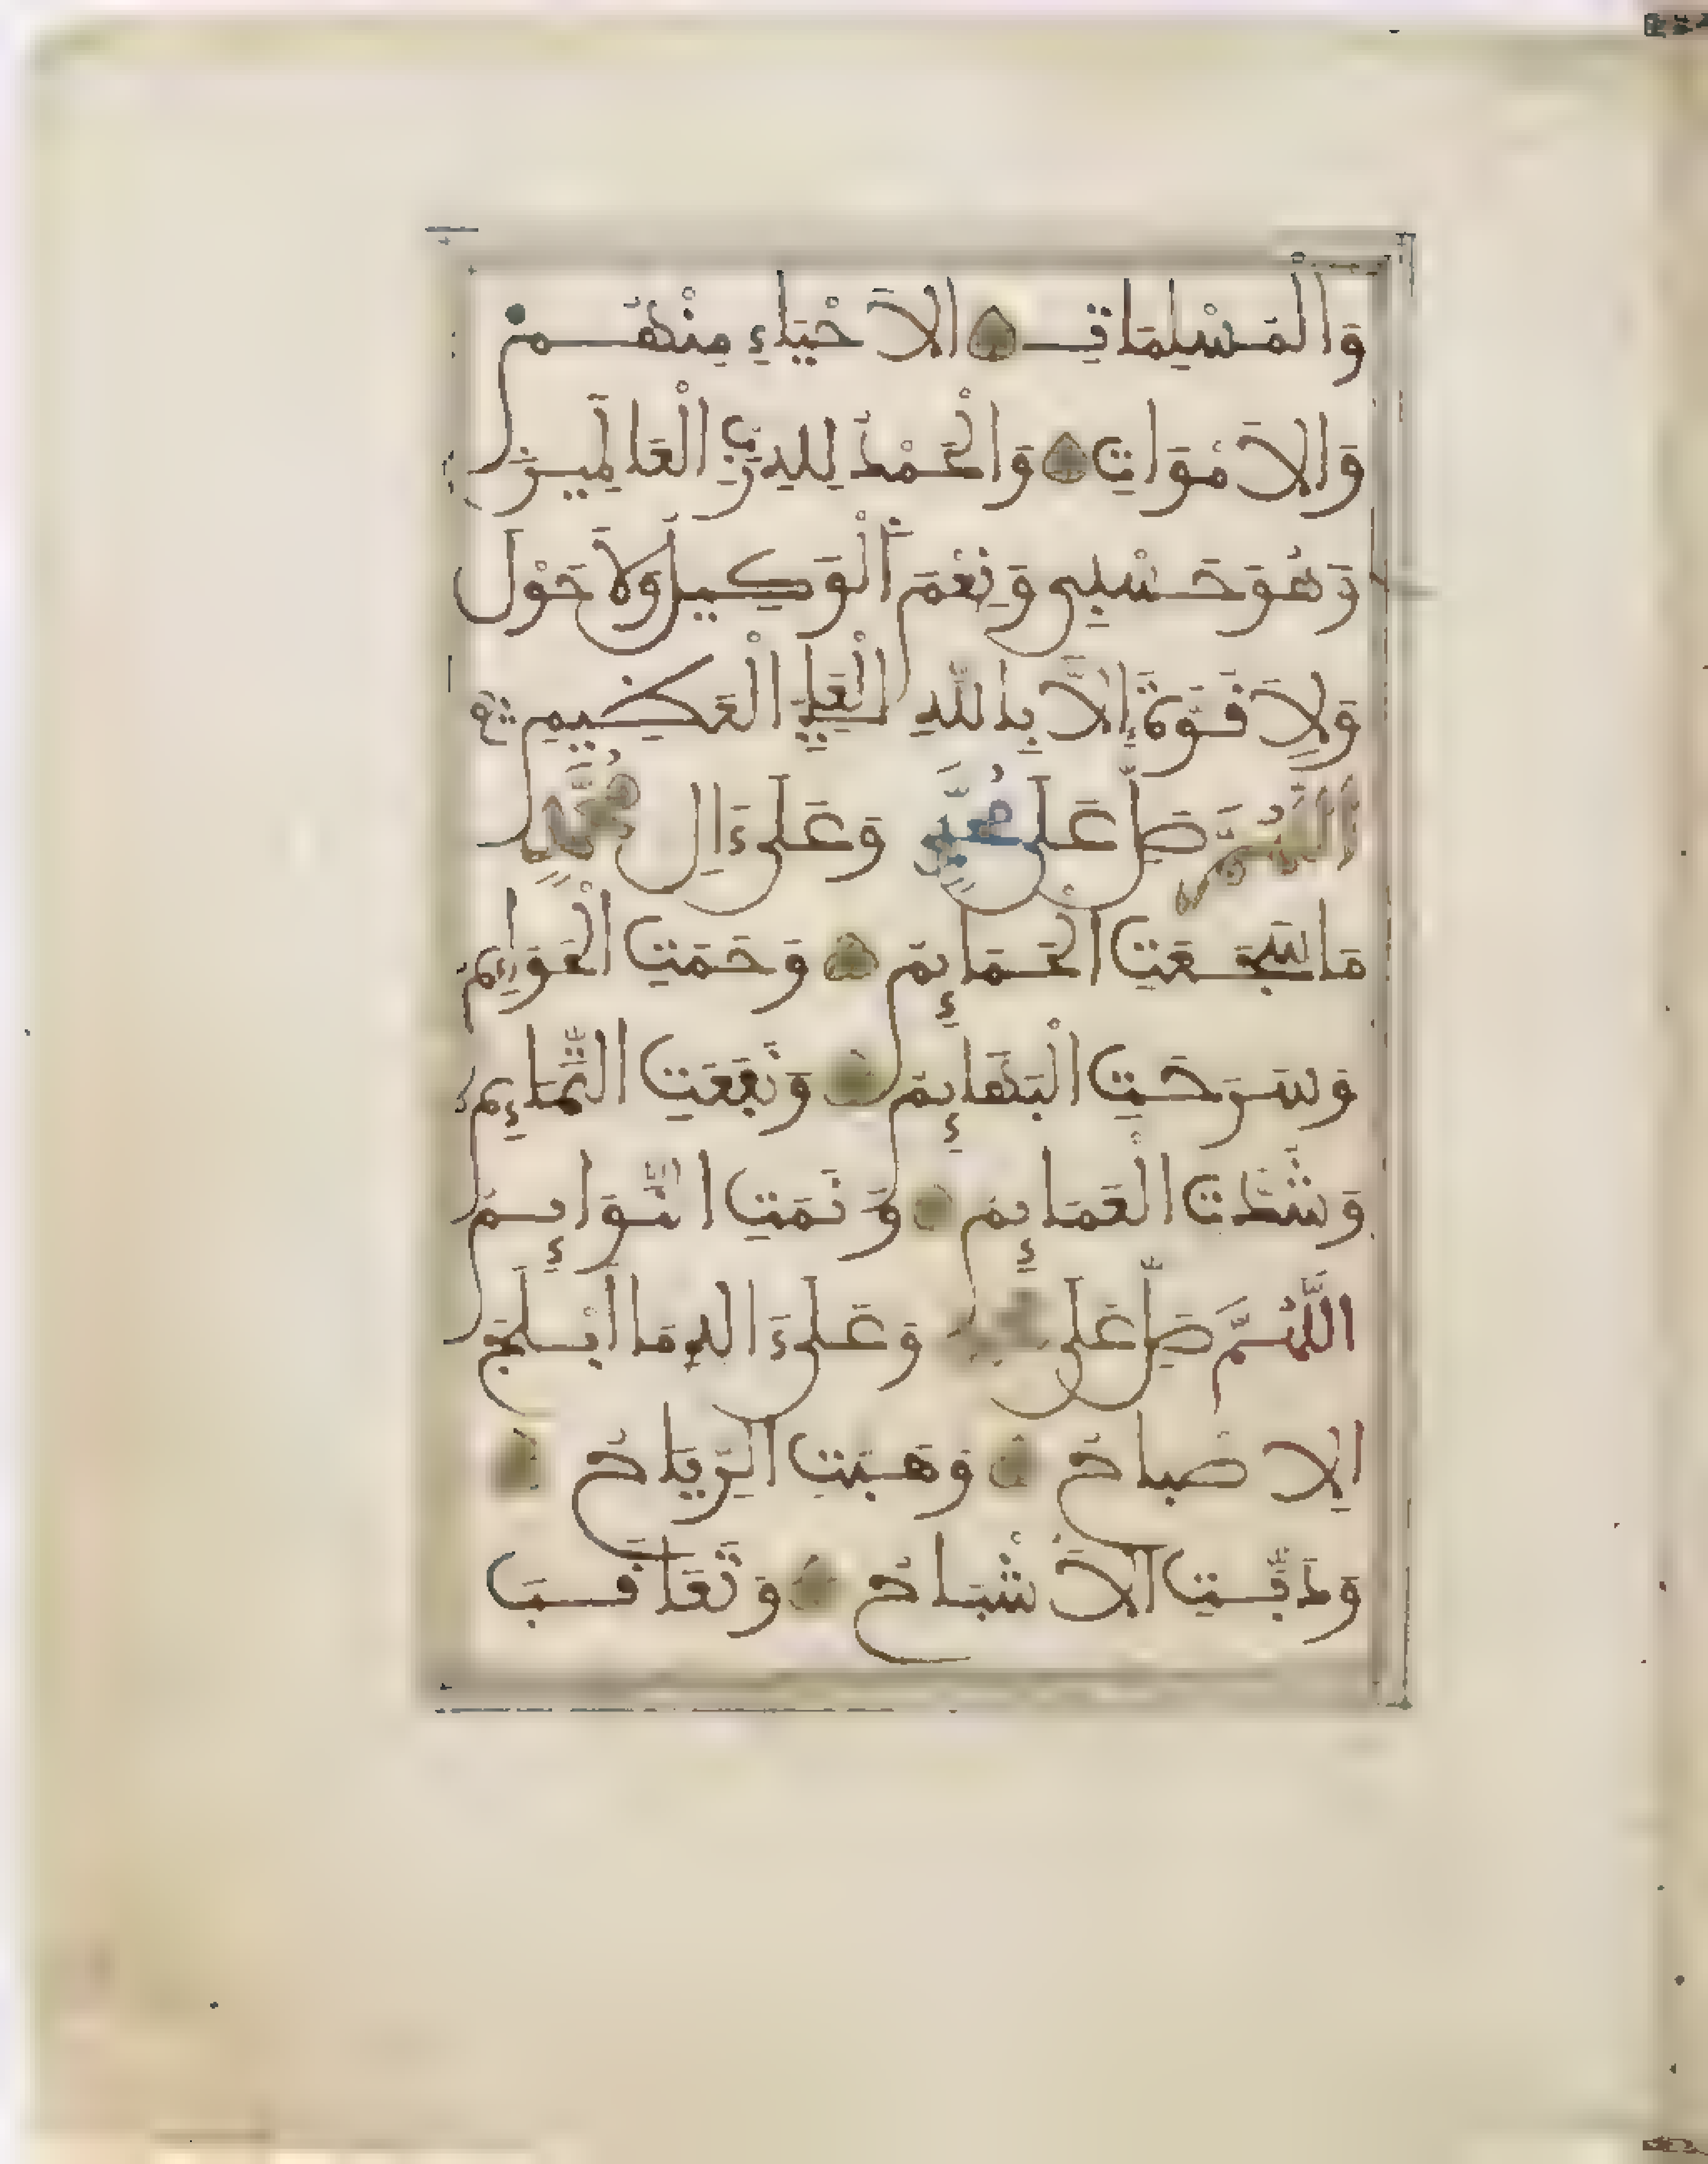 وَالْمُسْلِمَاتِ الاَحْيَاءِ مِنْهُمْ
وَالاَمْوَاتِ وَالْحَمْدُ لِلهِ رَبِّ الْعَالَمِينَ
وَهُوَ حَسْبِي وَنِعْمَ الْوَكِيلُ وَلاَ حَوْلَ
وَلاَ قُوَّةَ إِلاَّ بِاللَّهِ الْعَلِيِّ الْعَظِيمِ
اللَّهُمَّ صَلِّ عَلَى مُحَمَّدٍ وَعَلَى ءَالِ مُحَمَّدٍ
مَا سَجَعَتِ الْحَمَائِمُ وَحَمَتِ الْحَوَائِمُ
وَسَرَحَتِ الْبَهَائِمُ وَنَفَعَتِ التَّمَائِمُ
وَشُدَّتِ الْعَمَائِمُ وَنَمَتِ النَّوَائِمُ
اللَّهُمَّ صَلِّ عَلَى مُحَمَّدٍ وَعَلَى ءَالِهِ مَا أَبْلَجَ
الاِصْبَاحُ وَهَبَّتِ الرِّيَاحُ
وَدَبَّتِ الاَشْبَاحُ وَتَعَاقَبَ